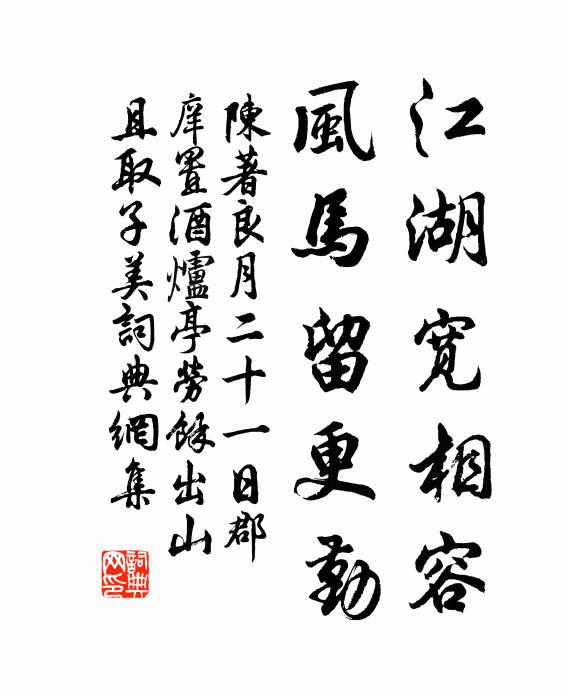 江湖宽相容
風馬留更勤
陳著良月二十一日郡
庠置酒爐亭勞餘出山
且取子美詞典網集
詞典网印